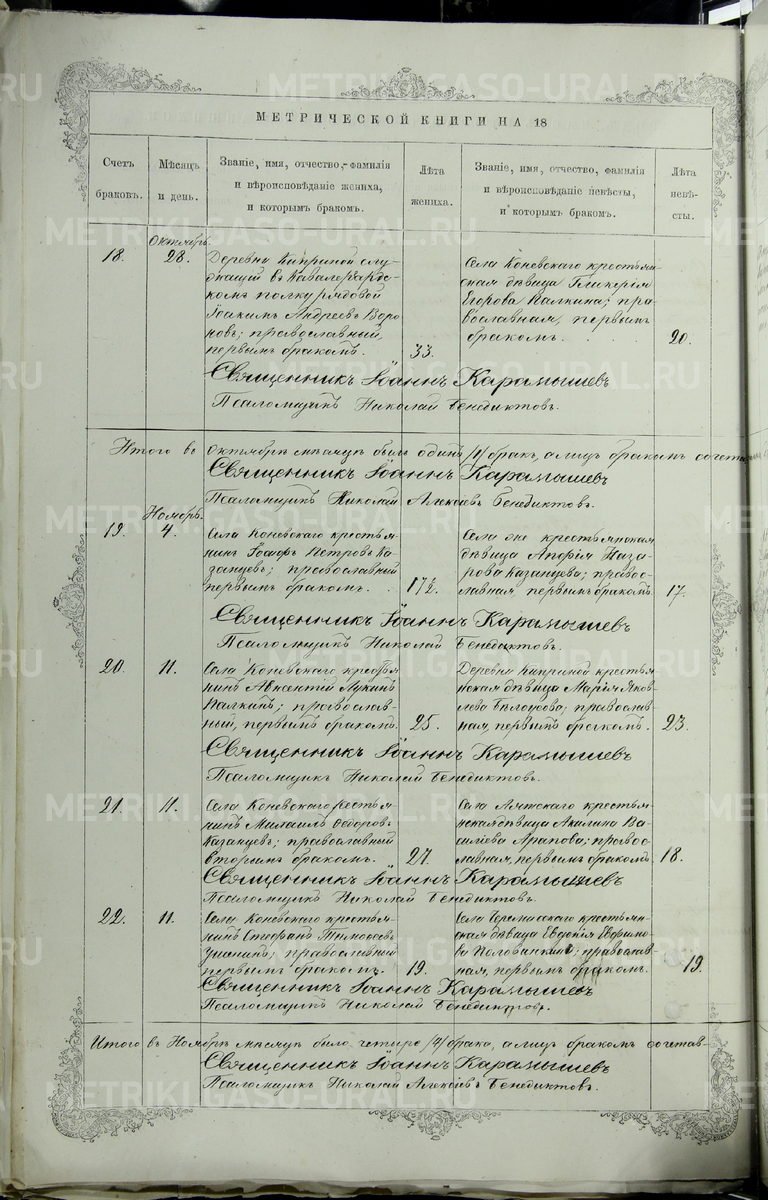 МЕТРИЧЕСКОЙ КНИГИ НА 18
Счетъ браковъ.
Мѣсяцъ и день.
Званіе, имя, отчество, фамилія
и вѣроисповѣданіе жениха,
и которымъ бракомъ.
Лѣта жениха.
Званіе, имя, отчество, фамилія
и вѣроисповѣданіе невѣсты,
и которымъ бракомъ.
Лѣта невѣ-
сты.
Октябрь.
18.
28.
Деревни Киприной слу-
жащій въ Кавалергардс-
комъ полку рядовой
Іоакимъ Андреевъ Воро
новъ; православный,
первымъ бракомъ.
33.
Села Коневскаго крестьян-
ская дѣвица Гликерія
Егорова Палкина; пра-
вославная, первымъ
бракомъ.
20.
Священникъ Іоаннъ Карамышевъ
Псаломщикъ Николай Бенедиктовъ.
Итого въ Октябрѣ мѣсяцѣ былъ одинъ /1/ бракъ, а лицъ бракомъ сочета
Священникъ Іоаннъ Карамышевъ
Псаломщикъ Николай Алексѣевъ Бенедиктовъ.
Ноябрь.
19.
4.
Села Коневскаго крестья-
нинъ Іоасафъ Петровъ Ка-
занцевъ; православный
первымъ бракомъ.
17½.
Села же крестьянская
дѣвица Апфія Наза-
рова Казанцева; правос-
лавная первымъ бракомъ
17.
Священникъ Іоаннъ Карамышевъ
Псаломщикъ Николай Бенедиктовъ.
20.
11.
Села Коневскаго крестья
нинъ Авксентій Лукинъ
Палкинъ; православ-
ный, первымъ бракомъ.
25.
Деревни Киприной крестья
нская дѣвица Марія Яков
лева Бѣлоусова; православ-
ная, первымъ бракомъ.
23.
Священникъ Іоаннъ Карамышевъ
Псаломщикъ Николай Бенедиктовъ.
21.
11.
Села Коневскаго крестья-
нинъ Михаилъ Ѳедоровъ
Казанцевъ; православный
вторымъ бракомъ.
27.
Села Аятскаго крестьян-
ская дѣвица Акилина Ва-
силіева Арапова; правос-
лавная, первымъ бракомъ
18.
Священникъ Іоаннъ Карамышевъ
Псаломщикъ Николай Бенедиктовъ.
22.
11.
Села Коневскаго крестья-
нинъ Стефанъ Тимоѳеевъ
православный
первымъ бракомъ.
19.
Села Черемисскаго крестьян-
ская дѣвица Евгенія Евфимо-
ва православ-
ная, первымъ бракомъ.
19.
Священникъ Іоаннъ Карамышевъ
Псаломщикъ Николай Бенедиктовъ.
Итого въ Ноябрѣ мѣсяцѣ было четыре /4/ брака, а лицъ бракомъ сочетав-
Священникъ Іоаннъ Карамышевъ
Псаломщикъ Николай Алексѣевъ Бенедиктовъ.
METRIKI.GASO-URAL.RU